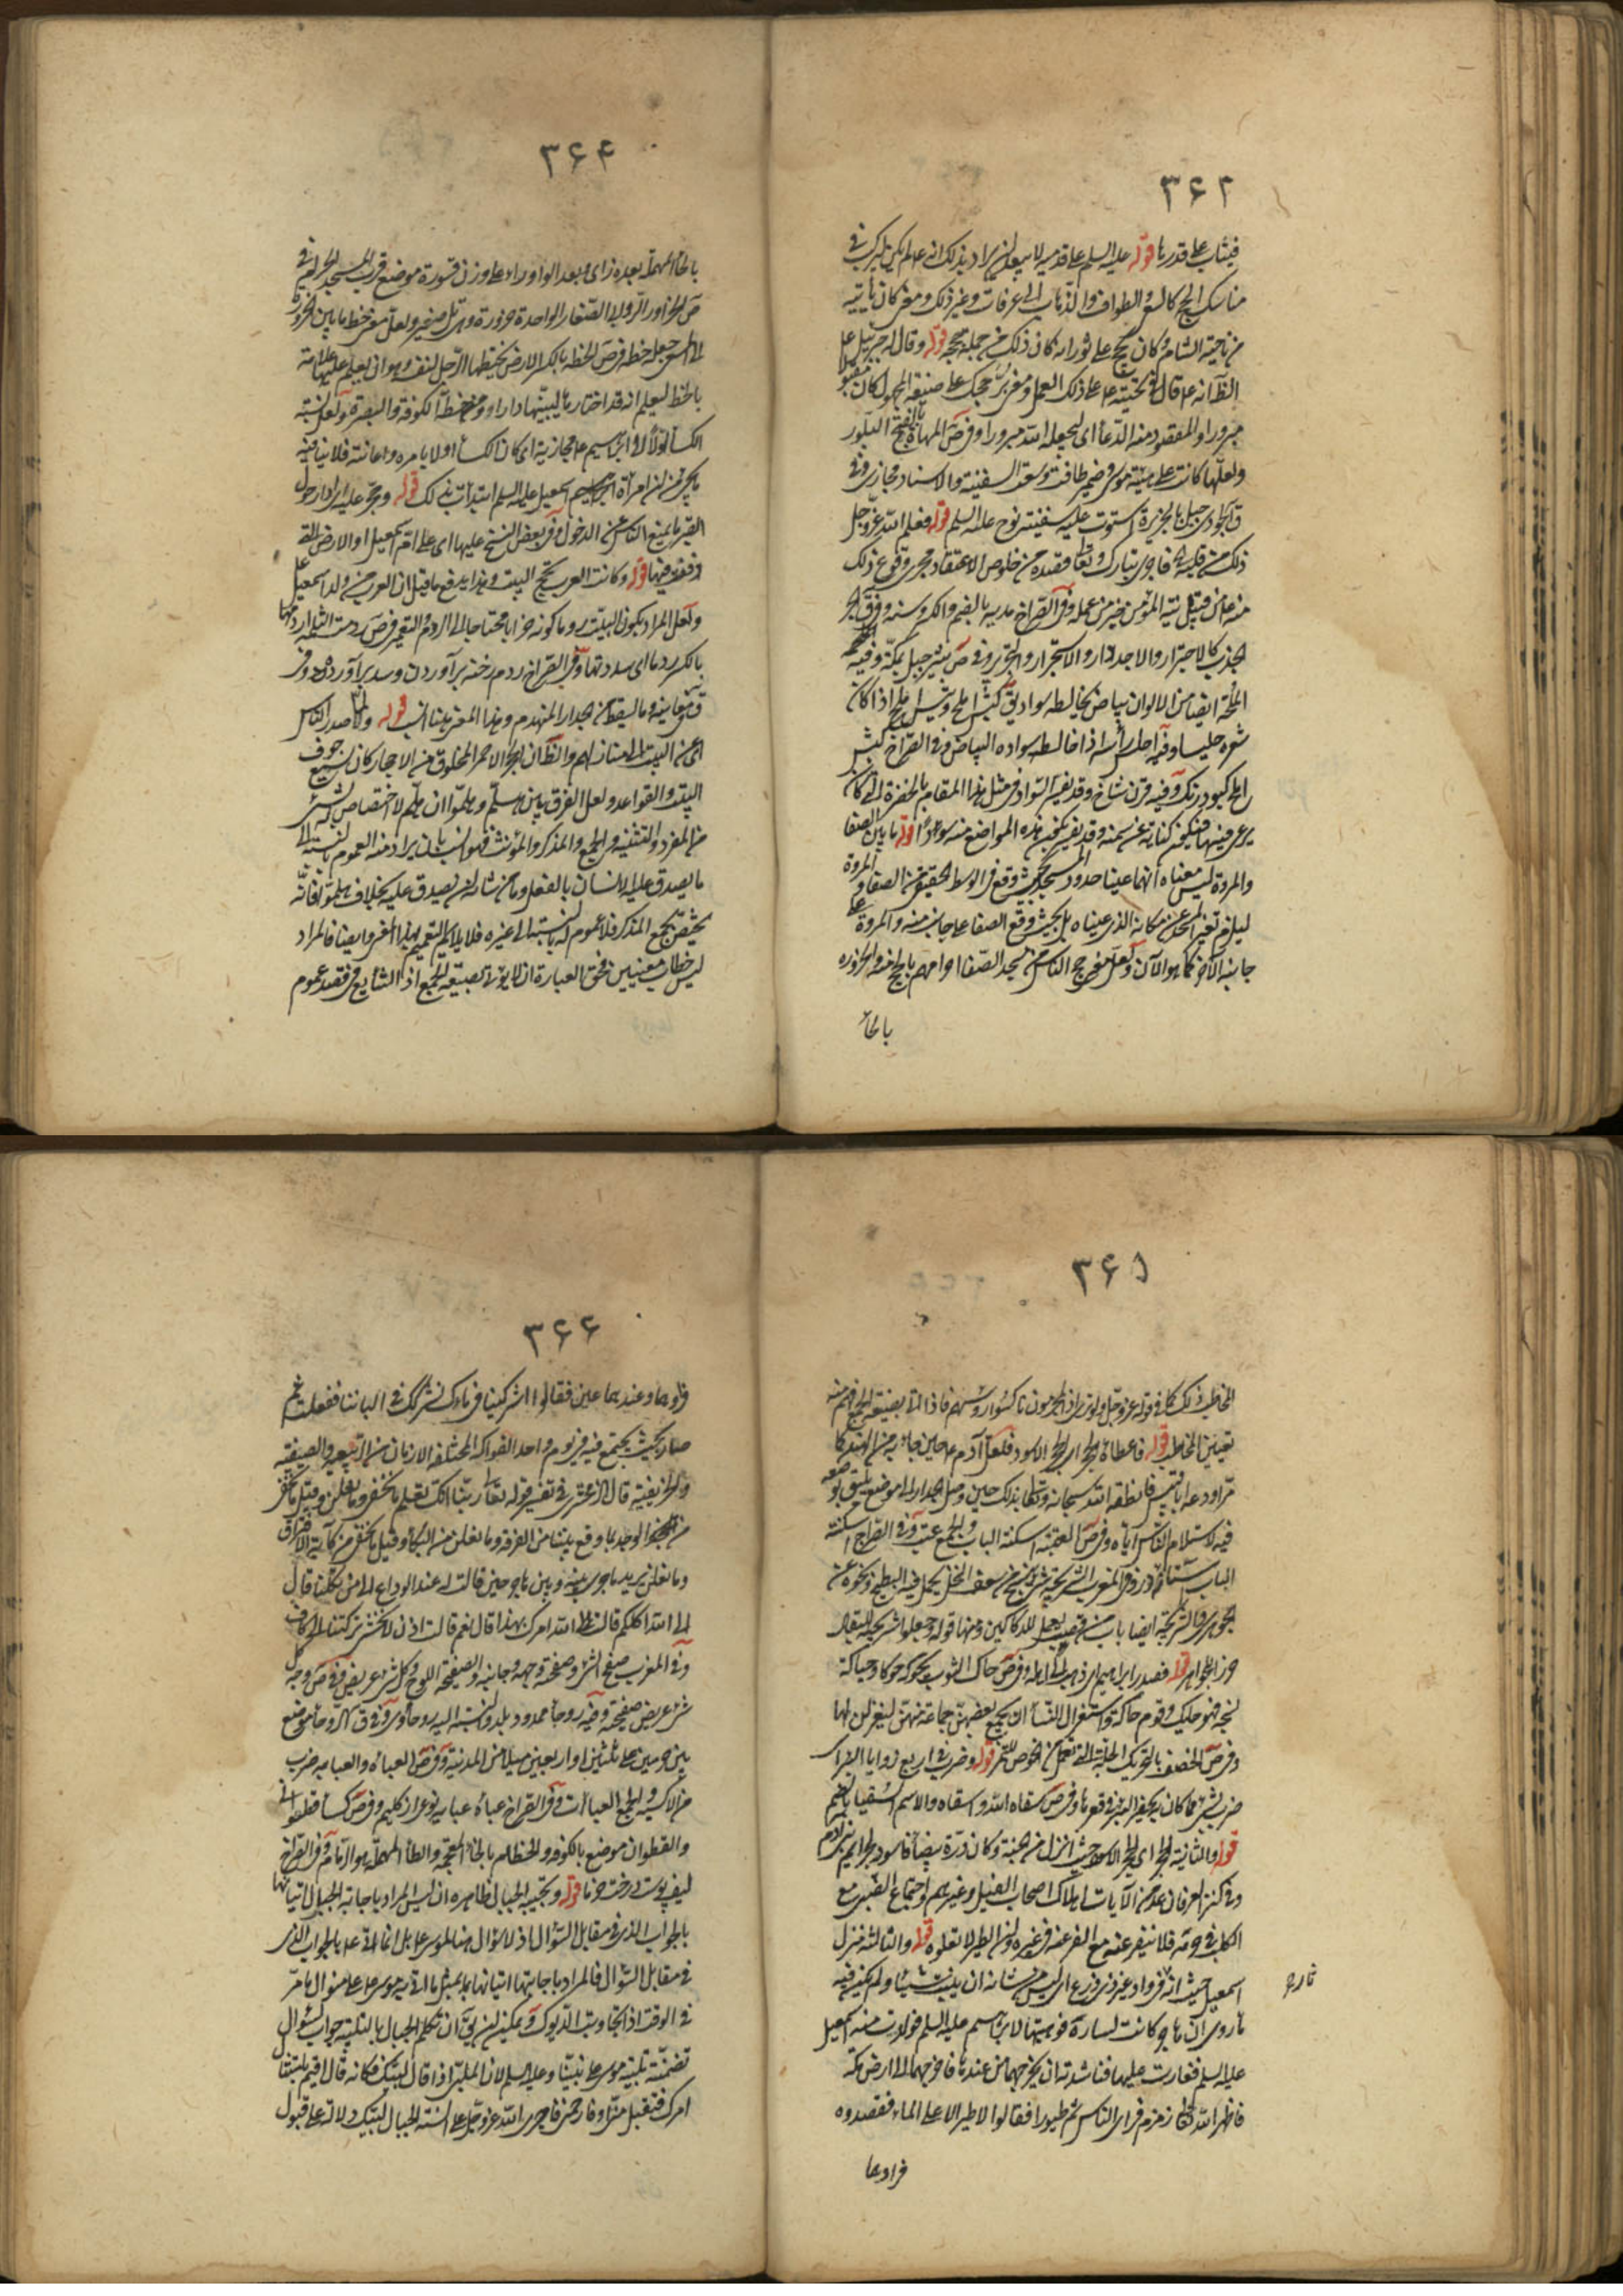 ۳۶۲
فيثاب على قدرها قوله عليه السلم على قدميه لا يبعد ان يراد بذلك انه عليه لم يكن يركب في
مناسك الحج كالسعى والطواف والذهاب الى عرفات وغير ذلك ومن كان يأتيه
من ناحية الشام وكان يحج على ثور انه كان ذلك من جملة حججه قوله وقال له جبرئيل على
الظ انه على قال في تحيته على ذلك العمل ومعنى بر حجك على صيغة المجهول كان مقبولا
مبرورا والمقصود منه الدعأ اى ليجعله الله مبرورا وفى ص المهاة بالفتح البلور
ولعلها كانت على هيئة موسى وضمير طافت وسعت السفينة والاسناد مجازى وفى
ق الجودى جبل بالجزيرة استوت عليه سفينة نوح عليه السلم قوله فعلم الله عز وجل
ذلك من قلبه فاجرى تبارك وتعا قصده من خلوص الاعتقاد مجرى وقوع ذلك
منه على من قبيل نية المؤمن خير من عمله وفى الصراح مديه بالضم والكسر وسنه وفى ق الجر
الجذب كالاجترار والاجدرار والاستجرار والتجرير وفى ص ثبير جبل بمكة وفيه
الملحة ايضا من الالوان بياض يخالطه سواد يق كبش املح وتيس املح اذا كان
شعره خليسا وفيه اخلس رأسه اذا خالط سواده البياض وفى الصراح كبش
املح كبود رنك وفيه قرن شاخ وقد يفسر السواد فى مثل هذا المقام بالخضرة التى كان
يرعى فيها فيكون كناية عن سمنه وقد يفسر بكون هذه المواضع منه سوداء قوله ما بين الصفا
والمروة ليس معناه انهما عينا حدود المسجد بحيث وقع فى الوسط الحقيقى من الصفا والمروة
ليلزم تغير المسجد عن مكانه الذى عيناه بل بحيث وقع الصفا على جانب منه والمروة على
جانبه الآخر كما هو الآن ولعل معنى خرج الناس من مسجد الصفا احرامهم بالحج منه والحزورة
بالحا
۳۶۴
بالحاء المهملة بعده زاى وبعد الواو راء على وزن قسورة موضع قرب المسجد الحرام فى
ص الحزاور الروابى الصغار الواحدة حزورة وهى تل صغير ولعل معنى خط ما بين الحزورة
الى المسعى جعله خطة فى ص الخطة بالكسر الارض يختطها الرجل لنفسه وهو ان يعلم عليها علامة
بالخط ليعلم انه قد اختارها ليبنيها دارا ومنه خطط الكوفة والبصرة ولعل نسبة
الكسأ اولا الى ابرهيم على مجازية اى كان الكسأ اولا بامره واعانته فلا ينافيه
ما يجئ من ان امرأة اسمعيل عليه السلم ابتدأت بذلك قوله وحجر عليه اى ادار حول
القبر ما يمنع الناس من الدخول وفى بعض النسخ عليها اى على ام اسمعيل او الارض التى
دفنت فيها قوله وكانت العرب تحج البيت وهذا يدفع ما قيل ان العرب من ولد اسمعيل على
ولعل المراد بكون البيت ردما كونه خرابا محتاجا الى الردم والتعمير فى ص ردمت الثلمة اردمها
بالكسر ردما اى سددتها وفى الصراح ردم رخنه برآوردن وسد برآورده وفى
ق من معانيه وما يسقط من الجدار المنهدم وهذا المعنى بيتنا انسب قوله ولما صدر الناس
اى عن البيت الى منازلهم والظ ان الحجر الاحمر المخلوق منه الاحجار كان من جوف
البيت والقواعد ولعل الفرق بين هلم وهلموا ان هلم لا اختصاص له بشئ
من المفرد والتثنية والجمع والمذكر والمؤنث فهو انسب بان يراد منه العموم بالنسبة الى
ما يصدق عليه الانسان بالفعل ومن شانه ان يصدق عليه بخلاف هلموا فانه
يختص بجمع المذكر فلا عموم له بالنسبة الى غيره فلا يلائم التعميم بهذا المعنى وايضا فالمراد
ليس خطاب معينين فحق العبارة ان لا يؤتى بصيغة الجمع اذ الشايع فى قصد عموم
۳۶۵
المخاطب ذلك كما فى قوله عز وجل ولو ترى اذ المجرمون ناكسوا رؤسهم فاذا اتى بصيغة الجمع فهم منه
تعيين المخاطب قوله فاعطاه الحجر اى الحجر الاسود فلعل آدم على حين جاء به من الهند كما
مر اودعه ابا قبيس فانطقه الله سبحانه وتعا بذلك حين وصل الجدار الى موضع يليق بوضعه
فيه لاستلام الناس اياه وفى ص العتبة اسكفة الباب والجمع عتب وفى الصراح اسكفة
الباب آستانه در وفى المغرب الشريجة شئ ينسج من سعف النخل يحمل فيه البطيخ ونحوه عن
الجوهرى والشريجة ايضا باب من قصب يعمل للدكاكين ومنها قوله وجعلوا شريجة للبقال
حرز الجواهر قوله فصدر ابراهيم اى ذهب الى اهله وفى ص حاك الثوب يحوكه حوكا وحياكة
نسجه فهو حايك وقوم حاكة واستغزال النسأ ان يجمع بعضهن جماعة منهن ليغزلن لها
وفى ص الخصف بالتحريك الجلة التى تعمل من الخوص للتمر قوله وضرب فى اربع زوايا البئر اى
ضرب بشئ مما كان يحفر البئر فى قعرها وفى ص سقاه الله واسقاه والاسم السقيا بالضم
قوله والثانية الحجر اى الحجر الاسود حيث انزل من الجنة وكان درة بيضأ فاسود لجرايم بنى آدم
وفى كنز العرفان عد من الآيات اهلاك اصحاب الفيل وغيرهم واجتماع الضبى مع
الكلب فى حرمه فلا ينفر عنه مع انفر عنه فى غيره وان الطير لا تعلوه قوله والثالثة منزل
اسمعيل حيث انه فى واد غير ذى زرع اى ليس من شانه ان ينبت شيئا ولم يكن فيه
ماروى ان هاجر كانت لسارة فوهبتها لابرهيم عليه السلم فولدت منه اسمعيل
عليه السلم فغارت عليهما فناشدته ان يخرجهما من عندها فاخرجهما الى ارض مكة
فاظهر الله عين زمزم فراى الناس ثم طيورا فقالوا لا طير الا على الماء فقصدوه
فرأوهما
۳۶۶
فرأوهما وعندهما عين فقالوا اشركينا فى مائك نشركك فى الباننا ففعلت ثم
صار بحيث يجتمع فيه فى يوم واحد الفواكه المختلفة الازمان من الربيعية والصيفية
والخريفية قال الزمخشرى فى تفسير قوله تعا ربنا انك تعلم ما نخفى وما نعلن وقيل ما نخفى
من الوجد بما وقع بيننا من الفرقة وما نعلن من البكأ وقيل ما نخفى من كآبة الافتراق
وما نعلن يريد ما جرى بينه وبين هاجر حين قالت له عند الوداع الى من تكلنا قال
الى الله اكلكم قالت الله امرك بهذا قال نعم قالت اذن لا نخشى تركتنا الى كاف
وفى المغرب صفح الشئ وصفحته وجهه وجانبه والصفيحة اللوح وكل شئ عريض وفى ص وجه كل
شئ عريض صفيحة وفيه روحأ ممدود بلد والنسبة اليه روحاوى وفى ق الروحأ موضع
بين الحرمين على ثلثين او اربعين ميلا من المدينة وفى ص العباءه والعباية ضرب
من الاكسية والجمع العباآت وفى الصراح عباءه عبايه نوعى از كليم وفى ص كسأ قطوانى
والقطوان موضع بالكوفه والخطام بالخأ المعجمة والطأ المهملة هو الزمام وفى الصراح
ليف پوست درخت خرما قوله وتجيبه الجبال ظاهره ان ليس المراد باجابة الجبال اتيانها
بالجواب الذى فى مقابل السؤال اذ لا سؤال هنا لموسى على بل انما اتى على بالجواب الذى
فى مقابل السؤال فالمراد باجابتها اتيانها بما يمثل ما اتى به موسى على على منوال ما مر
فى الوقت اذ التجاوبت الديوك ويمكن ان يق ان تكلم الجبال بالتلبية جواب لسؤال
تضمنته تلبية موسى على نبينا وعليه السلم لان الملبى اذا قال لبيك فكانه قال اقيم بامتثال
امرك فتقبل منى وارحمنى فاجرى الله عز وجل على السنة الجبال لبيك دلالة على قبول